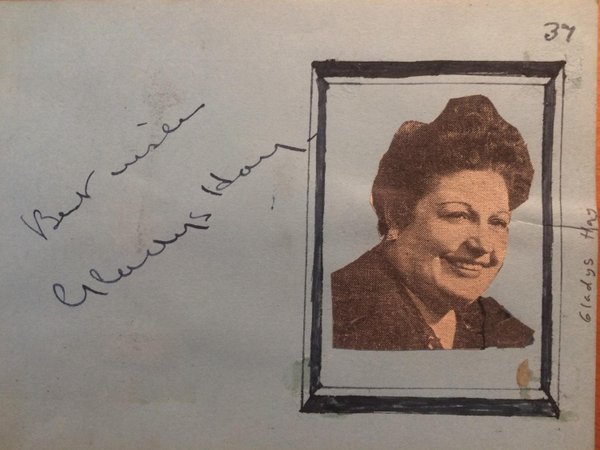 37
Best wishes
Gladys Hay
Gladys Hay